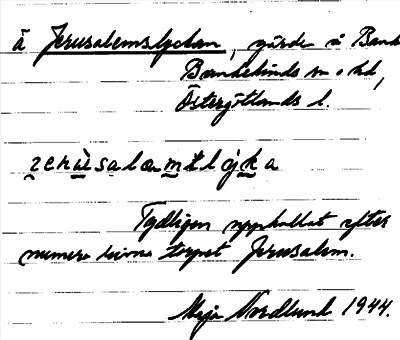 å Jerusalemslyckan, gärde i Bank
Bankekinds sn o hd,
Östergötlands l.
zerùsalæmslýka
Tydligen uppkallat efter
numera rivna torpet Jerusalem.
Maja Nordlund 1944.